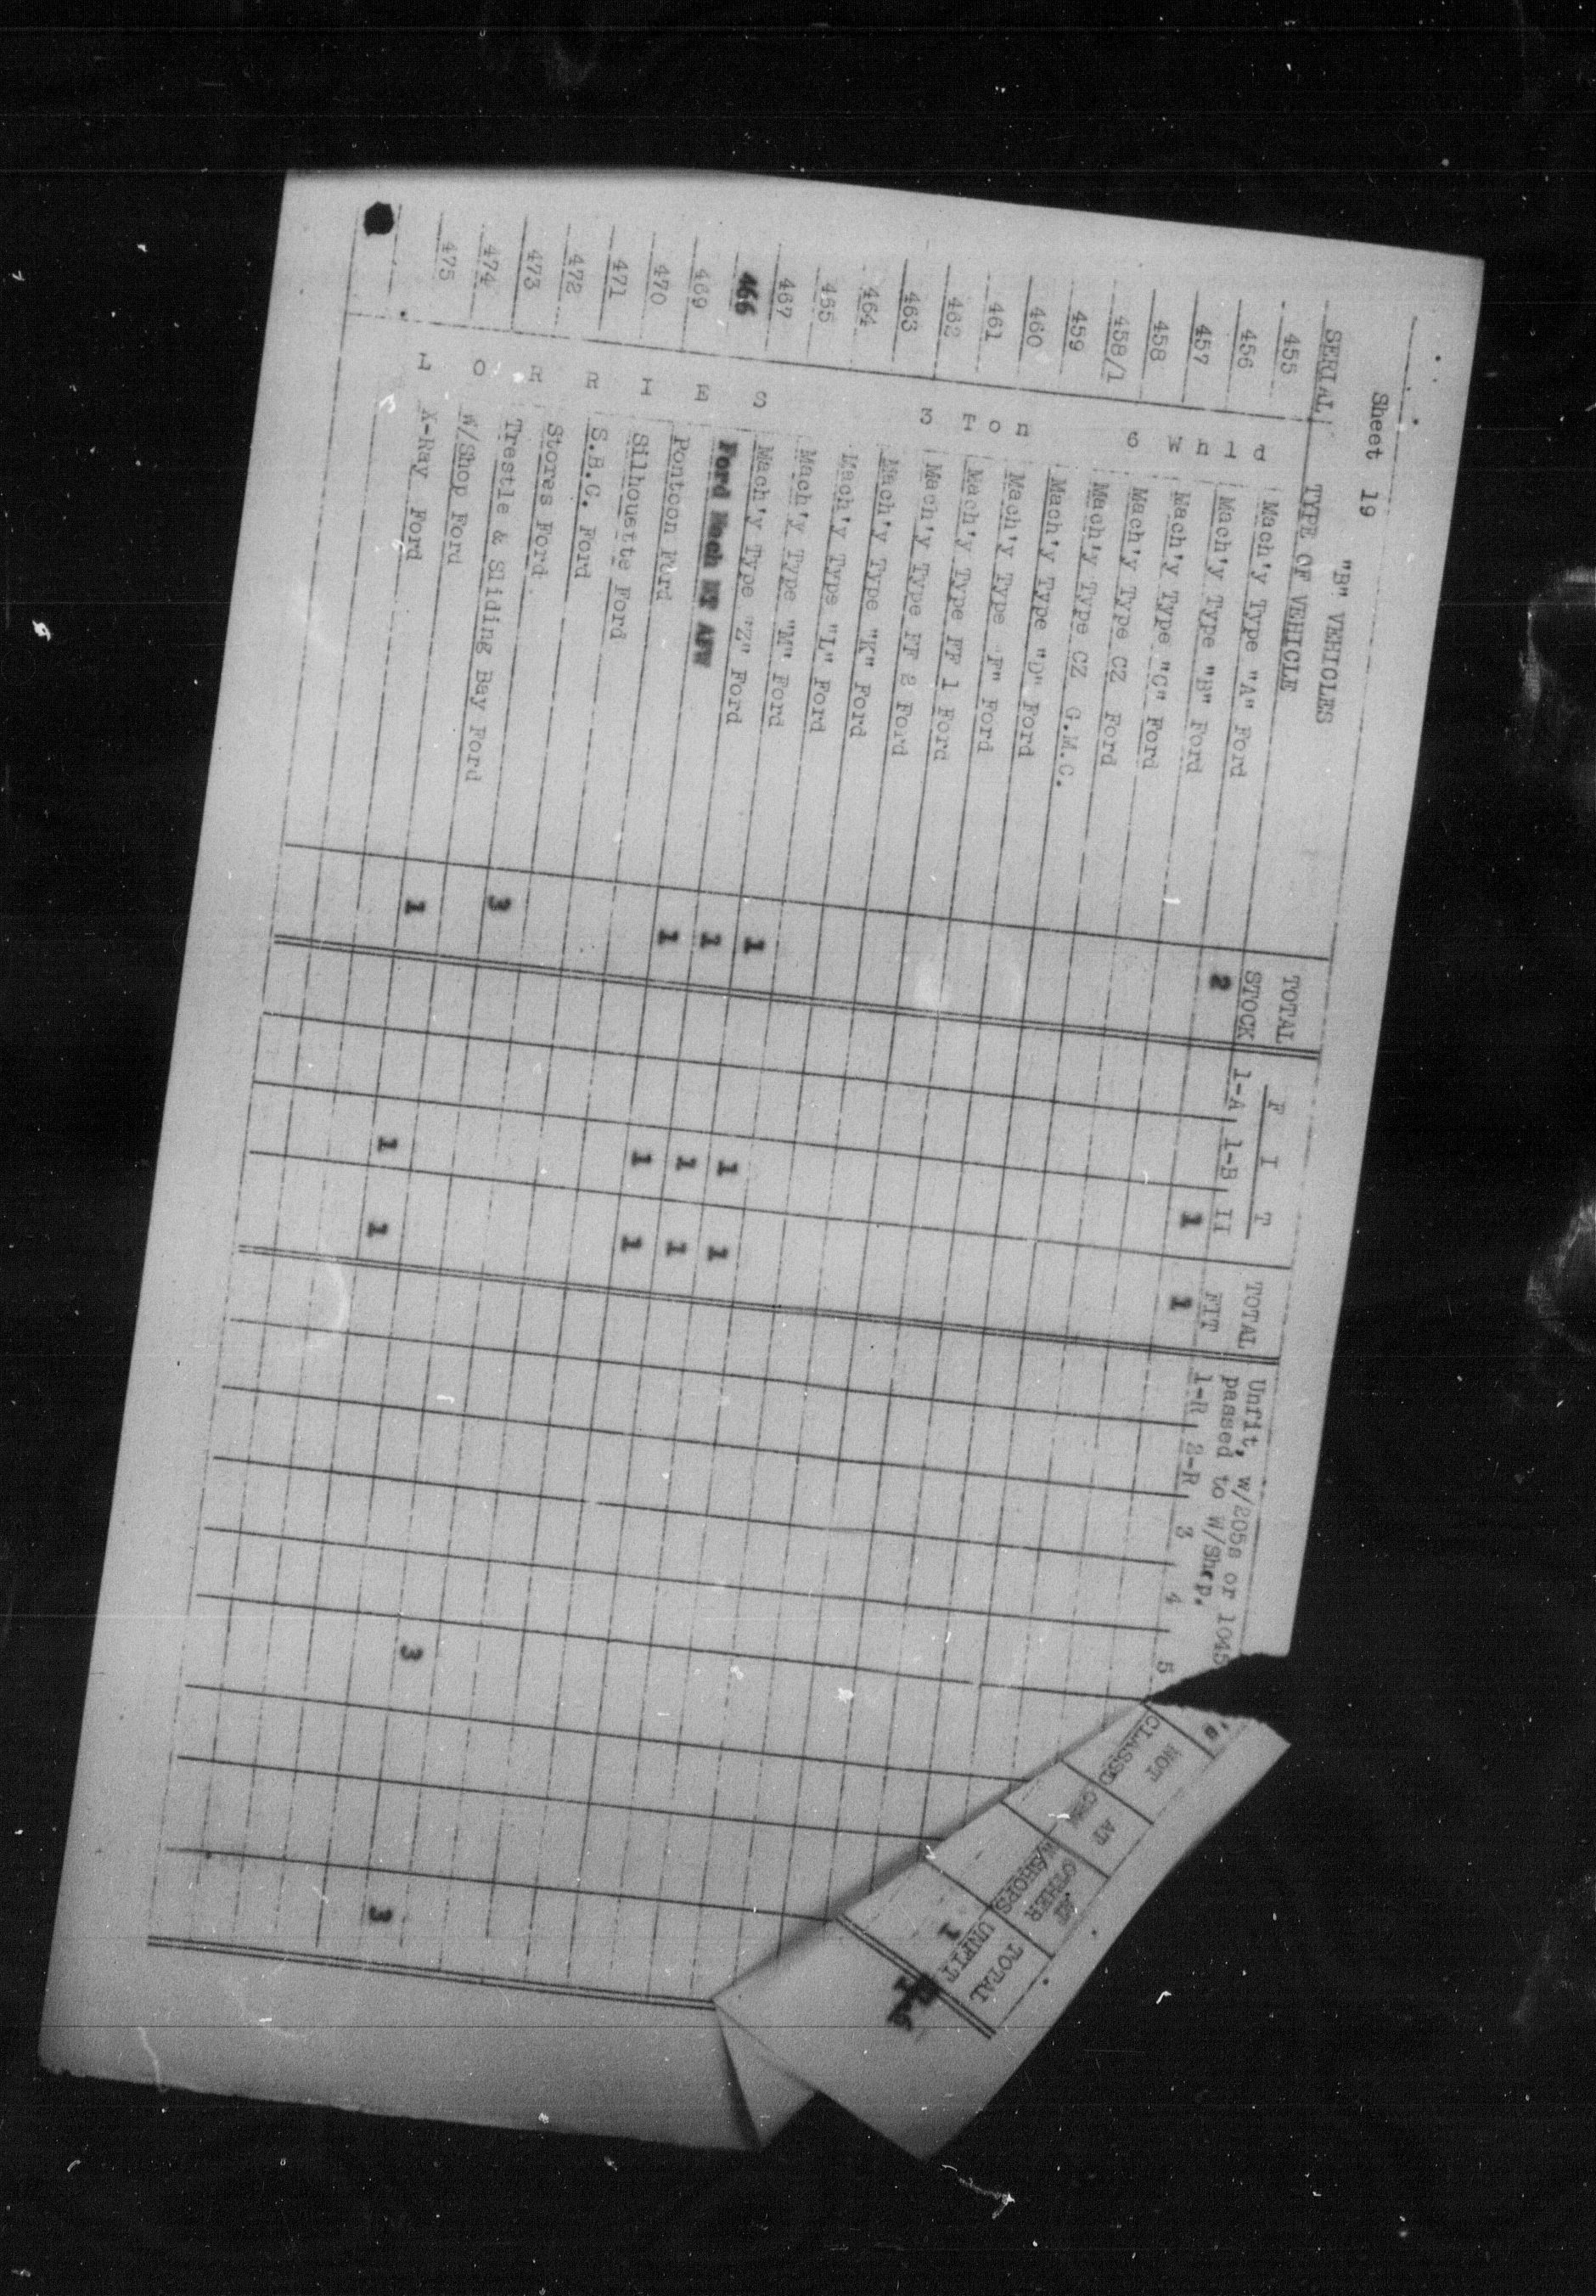 Sheet 19
"B" VEHICLES
SERIAL TYPE OF VEHICLE TOTAL STOCK F I T 1-A 1-B II TOTAL FIT Unfit, w/205s or 1045's passed to W/Shop. 1-R 2-R 3 4 5 NOT CLASSD AT GSW AT OTHER W/SHOPS TOTAL UNFIT
3 Ton 6 Whld
LORRIES
455 Mach'y Type "A" Ford 2 1 1 1
456 Mach'y Type "B" Ford
457 Mach'y Type "C" Ford
458 Mach'y Type CZ Ford
458/1 Mach'y Type CZ G.M.C.
459 Mach'y Type "D" Ford
460 Mach'y Type "F" Ford
461 Mach'y Type FF 1 Ford
462 Mach'y Type FF 2 Ford
463 Mach'y Type "K" Ford
464 Mach'y Type "L" Ford
465 Mach'y Type "M" Ford 1 1 1
467 Mach'y Type "Z" Ford 1 1 1
466 Ford Mach RT AFW 1 1 1
469 Pontoon Ford
470 Silhouette Ford
471 S.B.C. Ford
472 Stores Ford 3 3 3
473 Trestle & Sliding Bay Ford
474 W/Shop Ford 1 1 1
475 X-Ray Ford